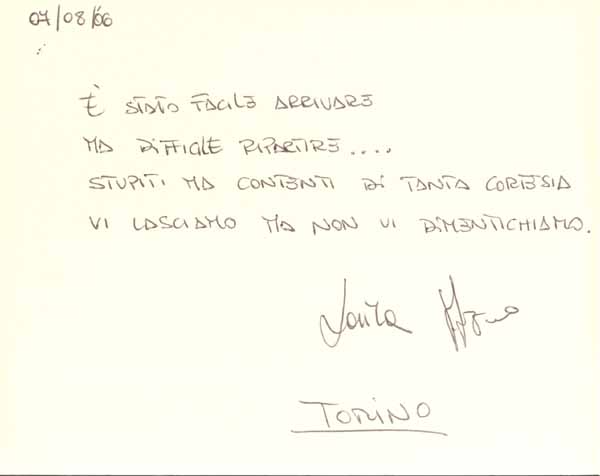 07/08/06
È STATO FACILE ARRIVARE
MA DIFFICILE RIPARTIRE....
STUPITI MA CONTENTI DI TANTA CORTESIA
VI LASCIAMO MA NON VI DIMENTICHIAMO.
Laura
TORINO